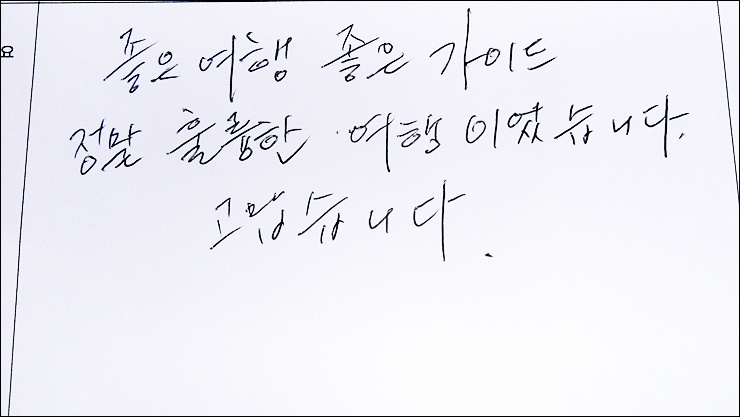 좋은 여행 좋은 가이드
정말 훌륭한 여행이었습니다.
고맙습니다.
요